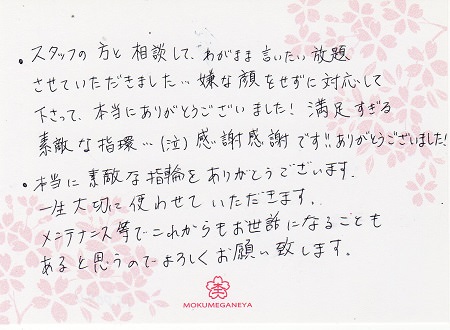 ・スタッフの方と相談して、わがまま言いたい放題
させていただきました…嫌な顔をせずに対応して
下さって、本当にありがとうございました！満足すぎる
素敵な指環…(泣)感謝感謝です!!ありがとうございました！
・本当に素敵な指輪をありがとうございます。
一生大切に使わせていただきます。
メンテナンス等でこれからもお世話になることも
あると思うのでよろしくお願い致します。
MOKUMEGANEYA